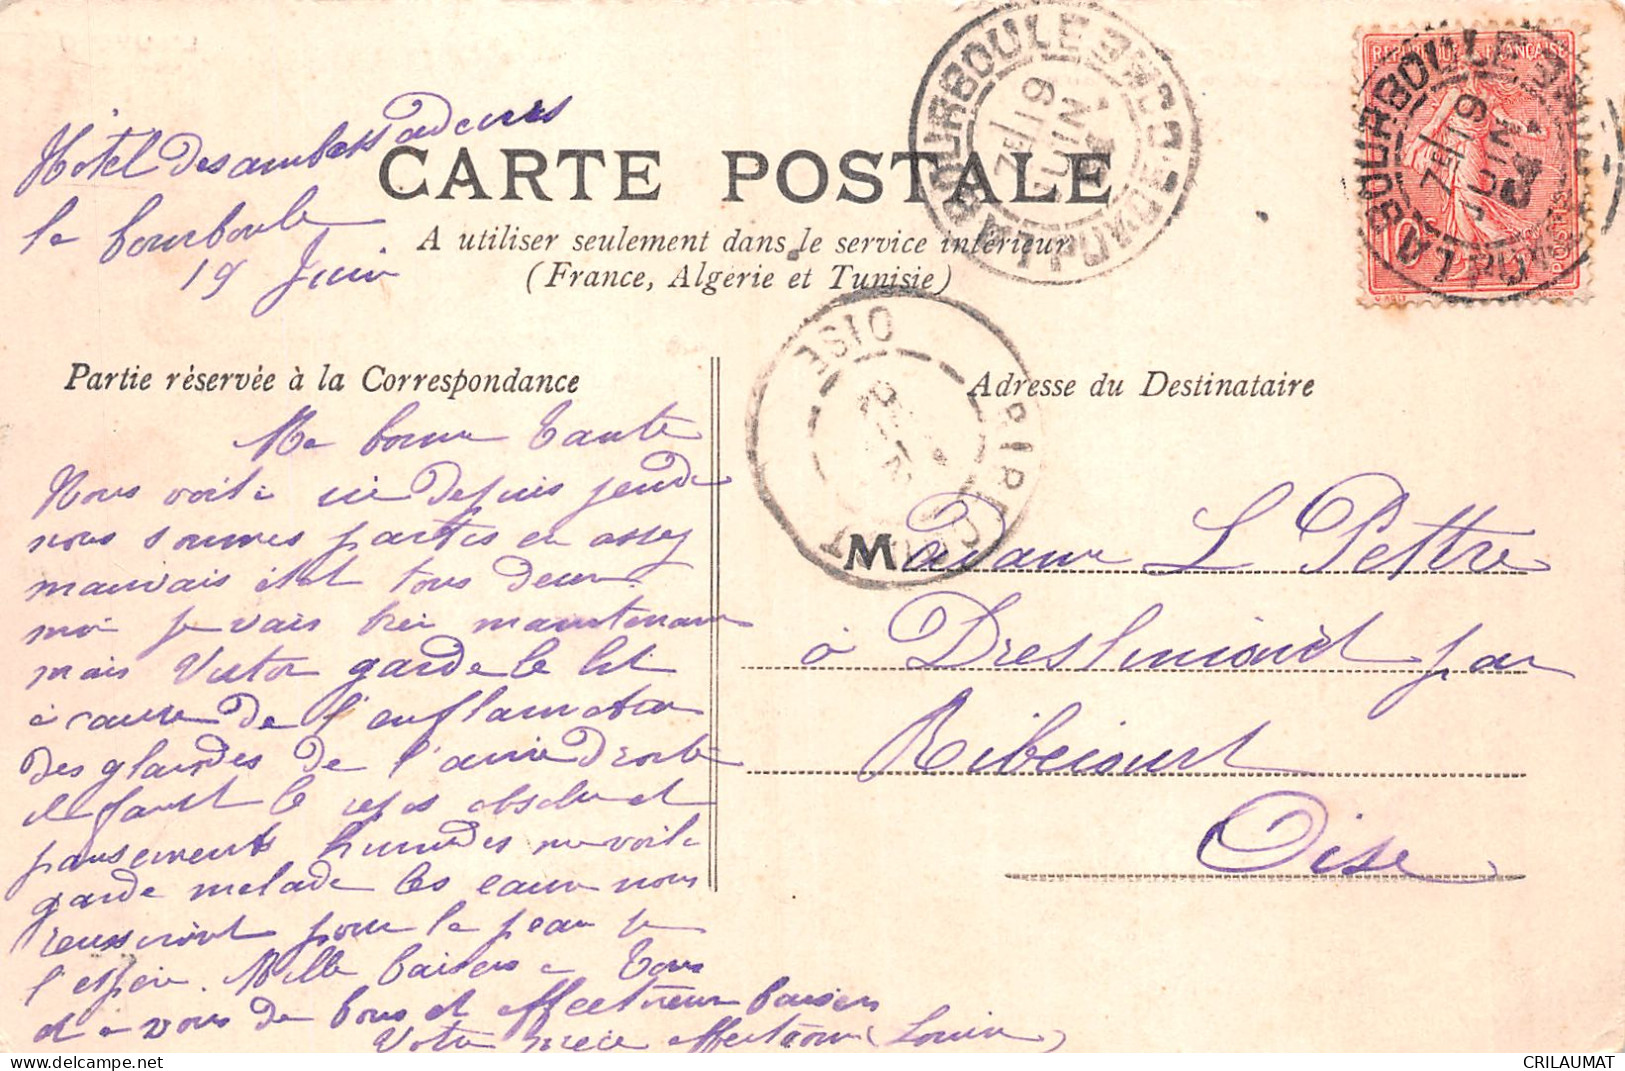 Hôtel des ambassadeurs
la bourboule
19 Juin
CARTE POSTALE
A utiliser seulement dans le service intérieur
(France, Algérie et Tunisie)
LA BOURBOULE PUY-DE-DOME
7E/19
JUIN
04
REPUBLIQUE FRANÇAISE
10c
POSTES
LA BOURBOULE PUY-DE-DOME
7E/19
JUIN
04
RIBECOURT
OISE
Partie réservée à la Correspondance
Ma bonne Tante
Nous voilà ici depuis jeudi
nous sommes parties en assez
mauvais état tous deux
moi je vais bien maintenant
mais Victor garde le lit
à cause de l'enflamation
des glandes de l'aine droite
il faut le repos absolu et
pansements humides me voilà
garde malade les eaux nous
reussiront pour la peau je
l'espère. Mille baisers a Tous
et a vous de bons et affectueux baisers
Votre nièce affectionnée Louise
Adresse du Destinataire
Madame L Pettre
à Dreslincourt par
Ribecourt
Oise
CRILAUMAT